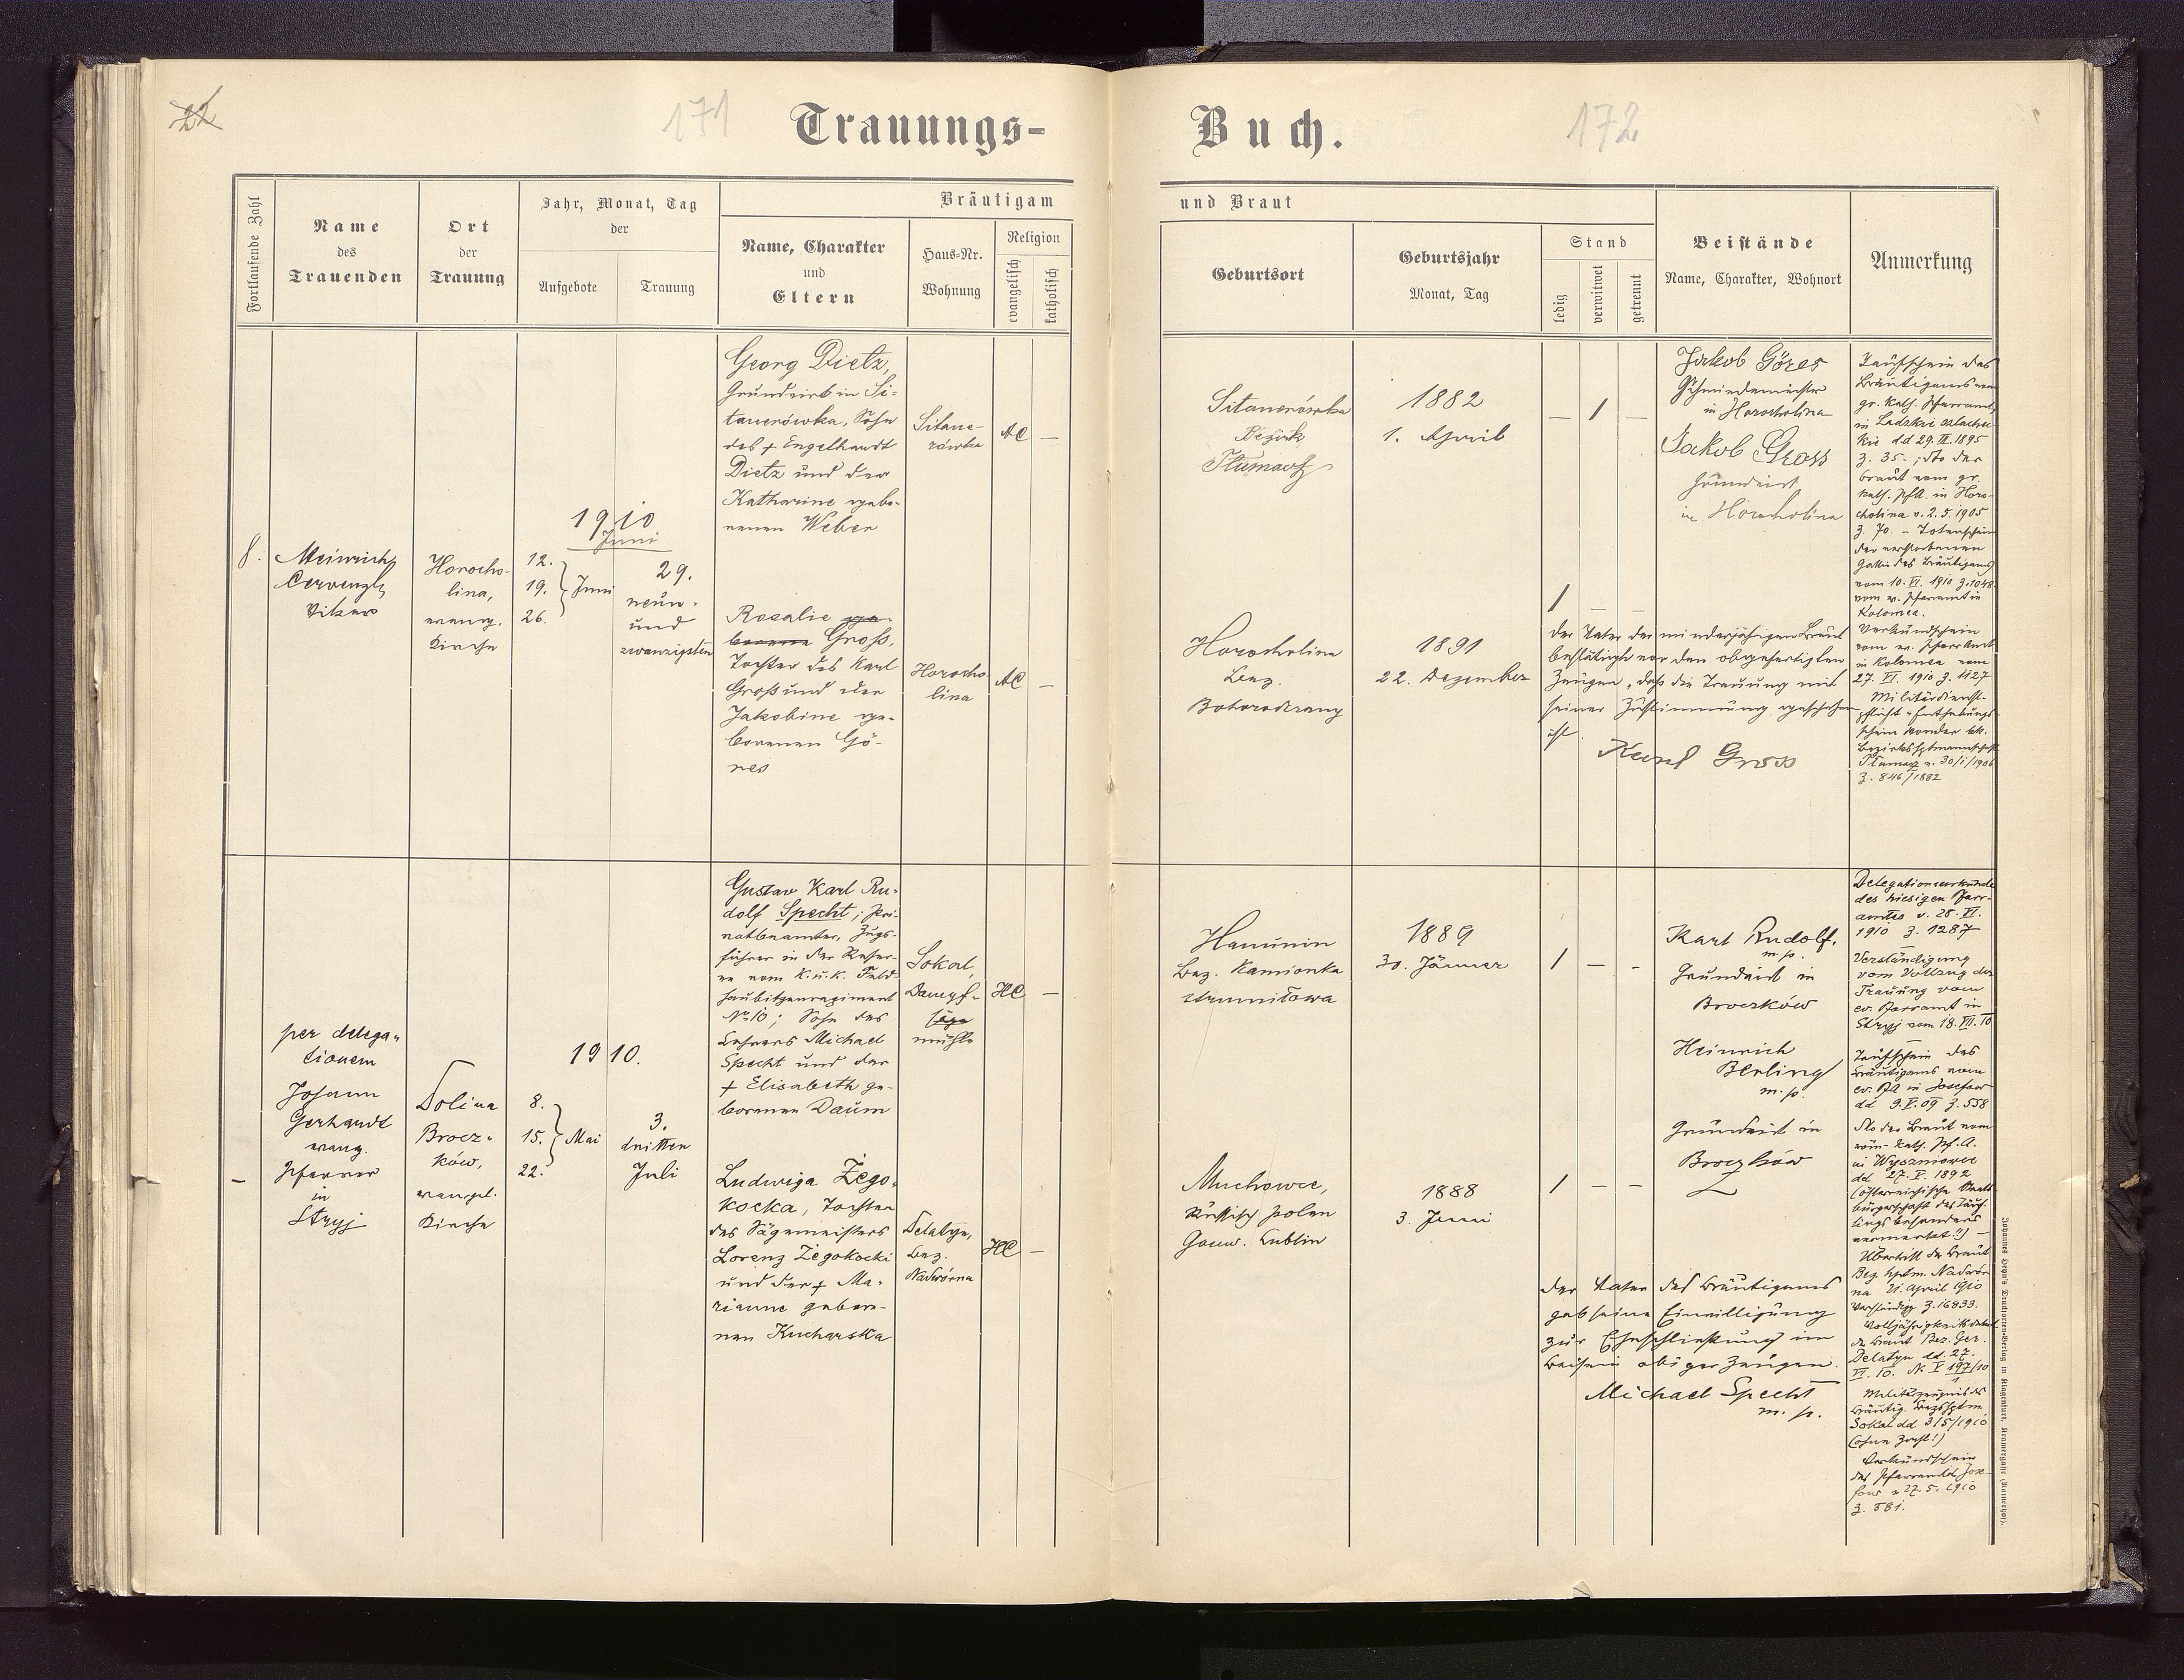 22
171
Trauungs-
Buch.
172
Fortlaufende Zahl
Name
des
Trauenden
Ort
der
Trauung
Jahr, Monat, Tag
der
Aufgebote
Trauung
Bräutigam
Name, Charakter
und
Eltern
Haus-Nr.
Wohnung
Religion
evangelisch
katholisch
und Braut
Geburtsort
Geburtsjahr
Monat, Tag
Stand
ledig
verwitwet
getrennt
Beistände
Name, Charakter, Wohnort
Anmerkung
8.
Heinrich
Vikar
Horocho-
lina,
evang.
Kirche
1910
Juni
12.
19. } Juni
26.
29.
neun-
und
zwanzigsten
Georg Dietz,
Grundwirt in Si-
tauerówka, Sohn
des + Engelhardt
Dietz und der
Katharine gebo-
renen Weber
Sitaue-
rówka
AC —
Rosalie ge-
borene Groß,
Tochter des Karl
Groß und der
Jakobine ge-
borenen Gö-
res
Horocho-
lina
AC —
Sitauerówka
Bezirk
Tłumacz
1882
1. April
— 1 —
Jakob Göres
Schmiedemeister
in Horocholina
Jakob Gross
Grundwirt
in Horocholina
Horocholina
Bez.
Bohorodczany
1891
22. Dezember
1 — —
Der Vater der minderjährigen Braut
bestätigt vor den obgefertigten
Zeugen, daß die Trauung mit
seiner Zustimmung geschehen
ist.
Karl Gross
Taufschein des
Bräutigams vom
gr. kath. Pfarramt
in Ladzkie szlachec-
kie dd 29. II. 1895
Z. 35.; dto der
Braut vom gr.
kath. PfA. in Horo-
cholina v. 2.5.1905
Z. 70. – Totenschein
der verstorbenen
Gattin des Bräutigams
vom 10. VI. 1910 Z. 1048
vom ev. Pfarramt in
Kolomea.
Verkündschein
vom ev. Pfarramt
in Kolomea vom
27. VI. 1910 Z. 1127
Militärdienst-
pflicht-Enthebungs-
schein von der kk.
Bezirkshptmannschaft
Tłumacz v. 30/1/1906
Z. 846/1882
—
per delega-
tionem
Johann
Gerhardt
evang.
Pfarrer
in
Stryj
Dolina
Brocz-
ków,
evangel.
Kirche
1910.
8.
15. } Mai
22.
3.
dritten
Juli
Gustav Karl Ru-
dolf Specht; Pri-
vatbeamter, Zugs-
führer in der Reser-
ve vom k.u.k. Feld-
haubitzenregiment
No 10; Sohn des
Lehrers Michael
Specht und der
+ Elisabeth ge-
borenen Daum
Sokal,
Dampf-
säge
mühle
HC —
Ludwiga Żego-
kocka, Tochter
des Sägemeisters
Lorenz Żegokocki
und der + Ma-
rianne gebore-
nen Kucharska
Delatyn,
Bez.
Nadwórna
HC —
Hanunin
Bez. Kamionka
strumiłowa
1889
30. Jänner
1 — -
Karl Rudolf,
m. p.
Grundwirt in
Broczków
Heinrich
Berling
m. p.
Grundwirt in
Broczków
Muchowce,
Russisch Polen
Gouw. Lublin
1888
3. Juni
1 — —
Der Vater des Bräutigams
gab seine Einwilligung
zur Eheschließung im
Beisein obiger Zeugen.
Michael Specht
m. p.
Delegationsurkunde
des hiesigen Pfarr-
amtes v. 28. VI.
1910 Z. 1287
Verständigung
vom Vollzug der
Trauung vom
ev. Pfarramt in
Stryj vom 18. VII. 10
Taufschein des
Bräutigams vom
ev. PA in Josefow
dd 9. V. 09 Z. 558
dto der Braut vom
röm. kath. Pf. A.
in
dd 27. V. 1892
(österreichische Staats-
bürgerschaft des Täuf-
lings besonders
vermerkt!) —
Übertritt der Braut
Bez. hptm. Nadwór-
na 21. April 1910
Z. 16833.
der Braut Bez. Ger.
Delatyn dd. 27.
VI. 10. Nc V 197/10
1
Militärzeugnis des
Bräutig. Bezhptm
Sokal dd 3/5/1910
(ohne Zahl!)
Verkündschein
des Pfarramtes Jose-
fow v 27. 5. 1910
Z. 581.
Johannes Heyn's Drucksorten-Verlag in Klagenfurt, Kramergasse